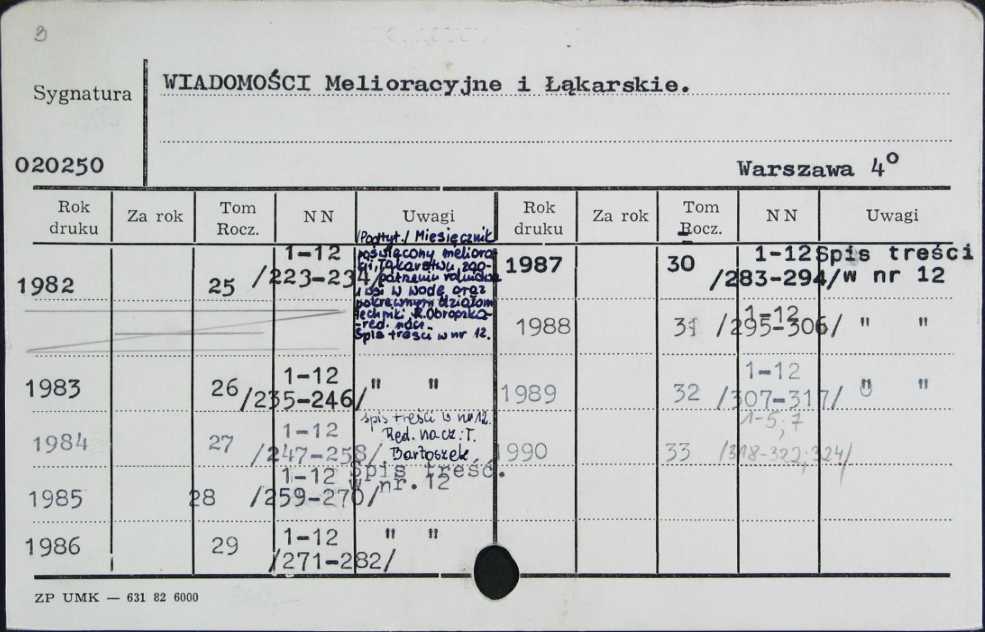 3
WIADOMOŚCI Melioracyjne i Łąkarskie.
Sygnatura
020250
Warszawa 4°
Rok druku Za rok Tom Rocz. NN Uwagi Rok druku Za rok Tom Rocz. NN Uwagi
1982 25 1-12 /223-234/
/Podtyt./ Miesięcznik
poświęcony meliora-
cji, łąkarstwu, zao-
patrzeniu rolnictwa
i wsi w wodę oraz
pokrewnym działom
techniki
-red. nacz.
Spis treści w nr 12.
1983 26 1-12 /235-246/ " "
1984 27 1-12 /247-258/
spis treści w nr 12.
Red. nacz.: T.
Bartoszek
1985 28 1-12 /259-270/ Spis treść.
w nr.12
1986 29 1-12 /271-282/ " "
1987 30 1-12 /283-294/ Spis treści
w nr 12
1988 31 1-12 /295-306/ " "
1989 32 1-12 /307-317/ " "
1990 33 1-5; 7 /318-322; 324/
ZP UMK — 631 82 6000